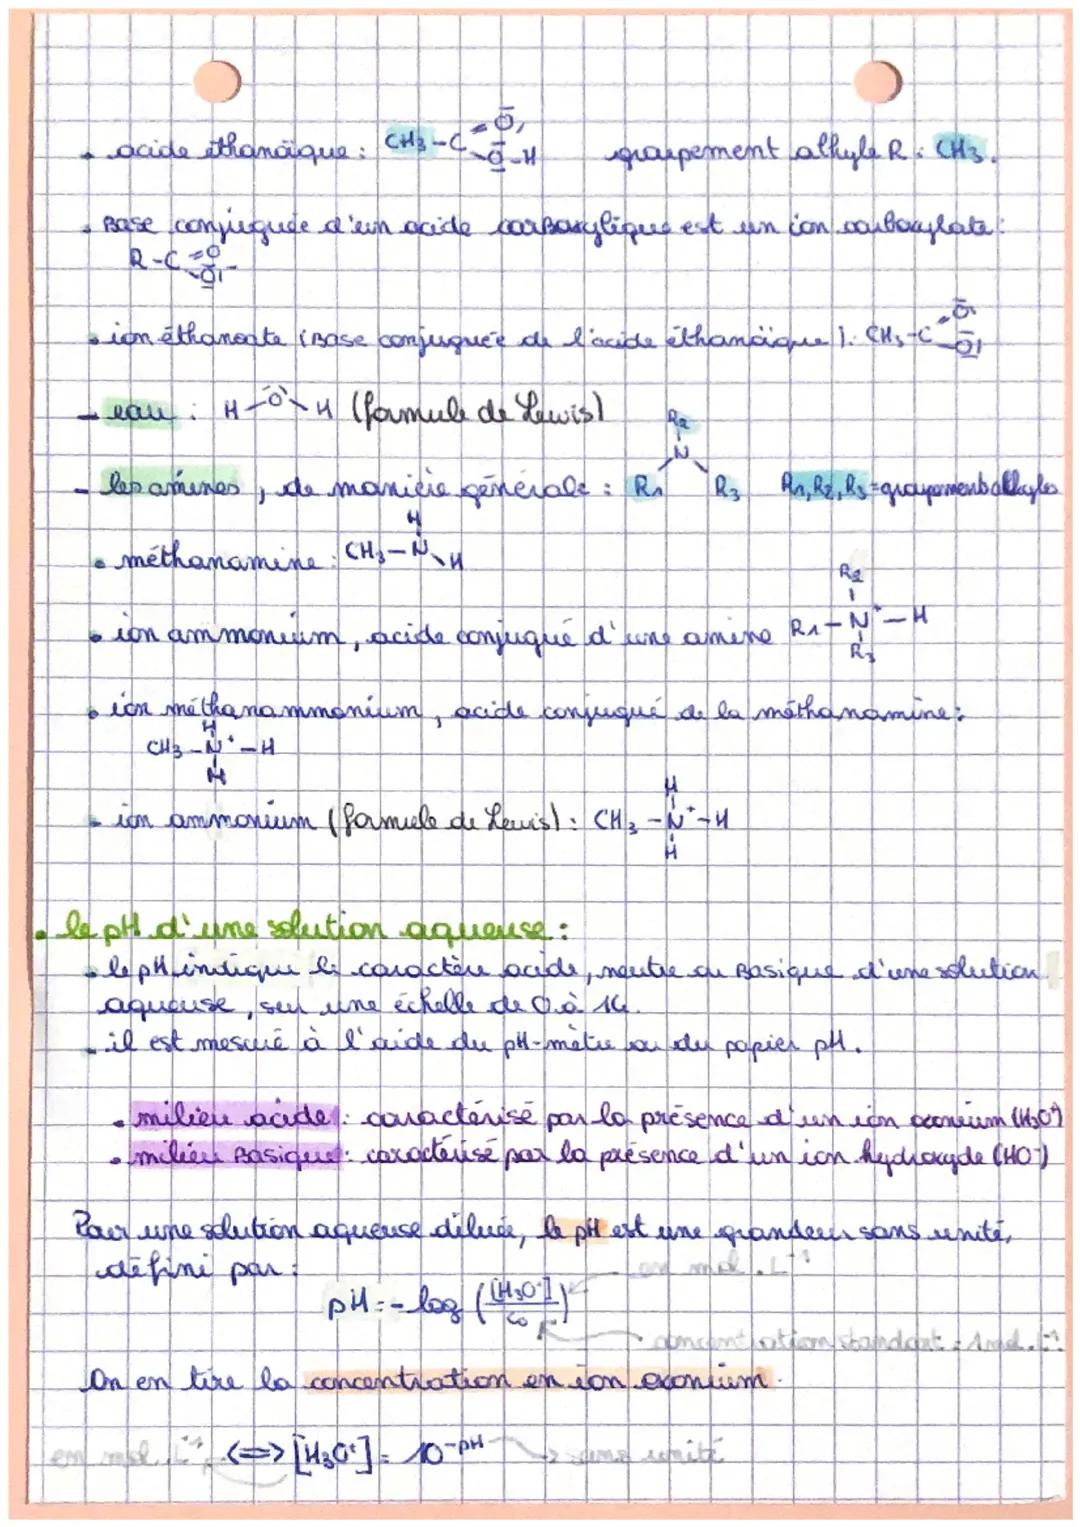 • acide éthanoïque : CH3-C=O, -O-H groupement alkyle R : CH3.
• Base conjuguée d'un acide carboxylique est un ion carboxylate :
R-C=O -O|⁻
• ion éthanoate (Base conjuguée de l'acide éthanoïque). CH3-C=O -O|
- eau : H-O-H (formule de Lewis)
- les amines, de manière générale : R1 N R2 R3 R1, R2, R3 = groupements alkyles
• méthanamine : CH3-N-H H
• ion ammonium, acide conjugué d'une amine R1-N⁺-H R2 R3
• ion méthanammonium, acide conjugué de la méthanamine :
CH3-N⁺-H H H
- ion ammonium (formule de Lewis) : CH3-N⁺-H H H
• le pH d'une solution aqueuse :
• le pH indique le caractère acide, neutre ou Basique d'une solution
aqueuse, sur une échelle de 0 à 14.
• il est mesuré à l'aide du pH-mètre ou du papier pH.
• milieu acide : caractérisé par la présence d'un ion oxonium (H3O⁺)
• milieu Basique : caractérisé par la présence d'un ion hydroxyde (HO⁻)
Pour une solution aqueuse diluée, le pH est une grandeur sans unité,
défini par : en mol.L⁻¹
pH = -log ([H3O⁺]/C0)
concentration standart : 1mol.L⁻¹
On en tire la concentration en ion oxonium.
en mol.L⁻¹ <=> [H3O⁺] = 10^-pH → sans unité